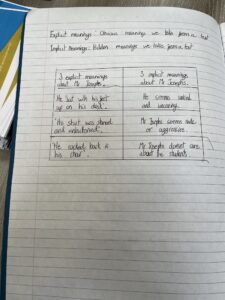 Explicit meanings: Obvious meanings we take from a text
Implicit meanings: Hidden meanings we take from a text
3 explicit meanings
about Mr Josephs.
3 implicit meanings
about Mr Josephs.
He sat with his feet
up on his desk.
He seems
and uncaring.
His shirt was stained
and
Mr Josephs seems rude
or aggressive.
He rocked back in
his chair.
Mr Josephs doesnt care
about the students.